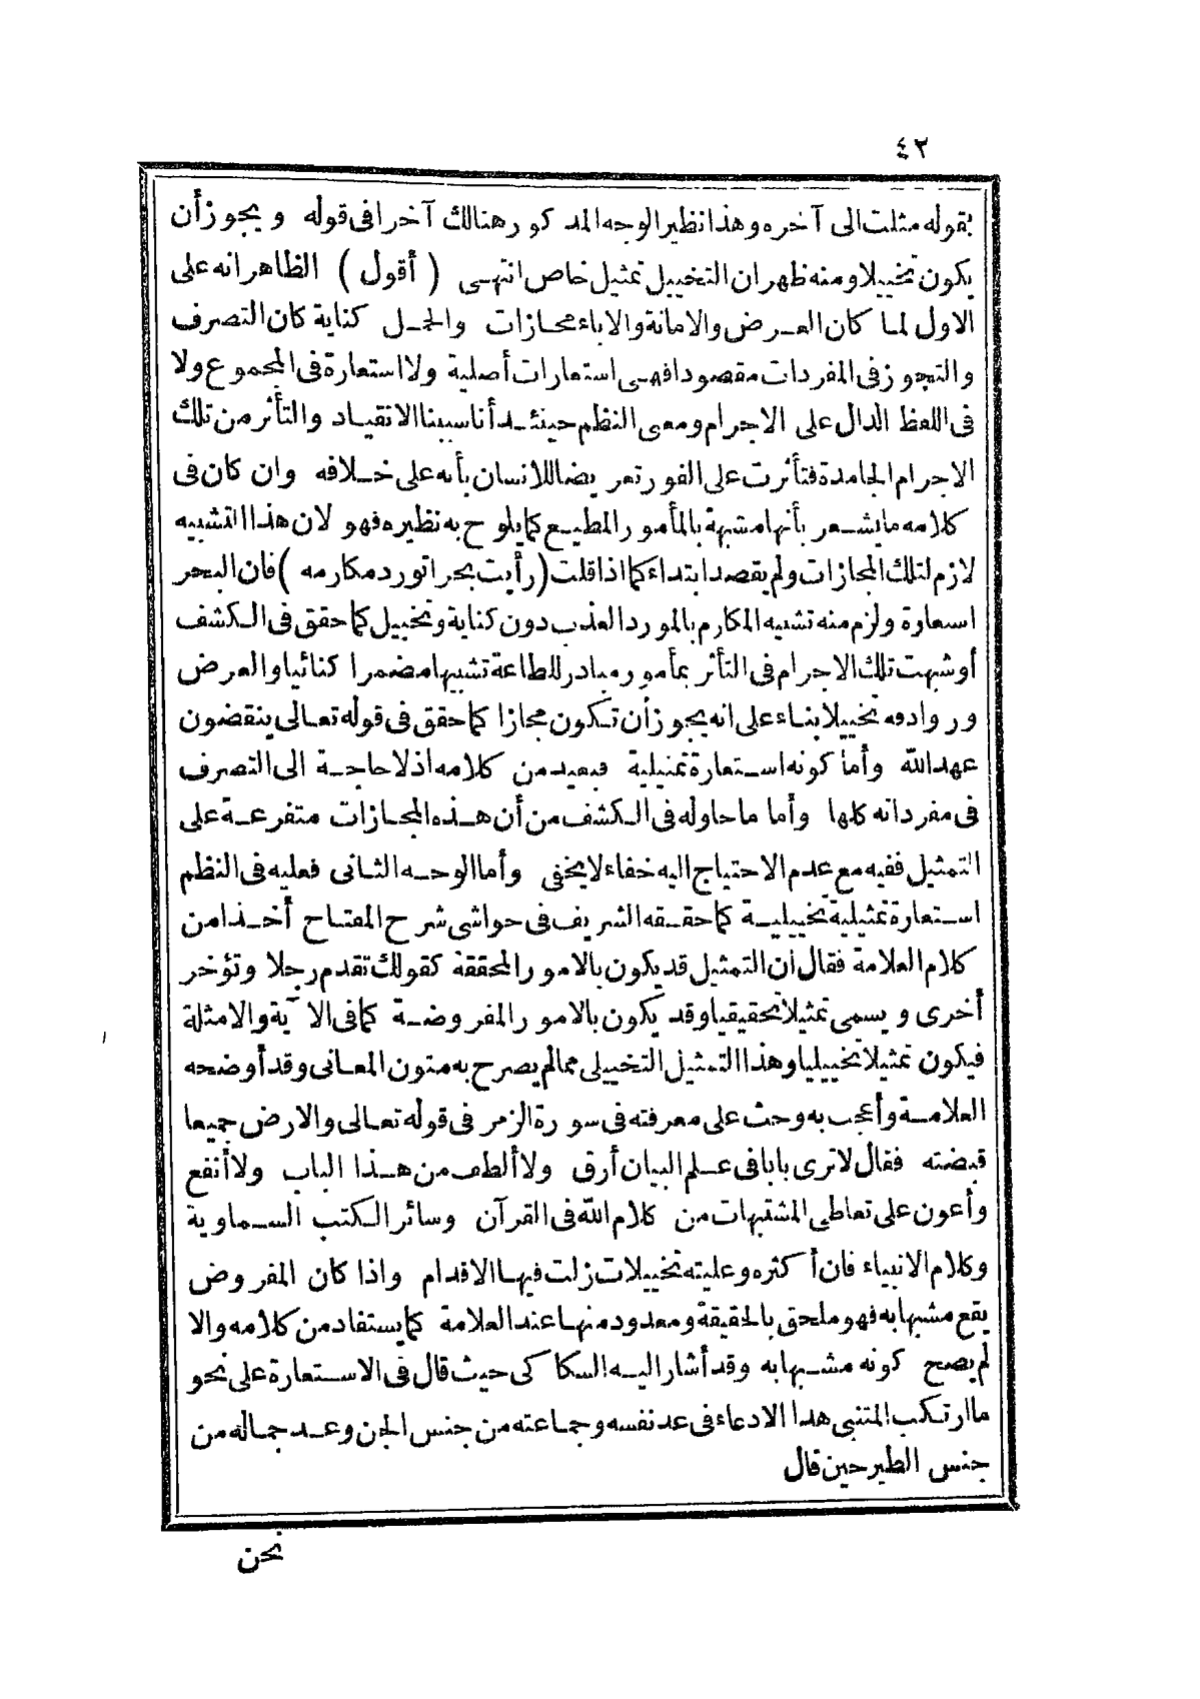 ٤٢
بقوله مثلت الى آخره وهذا نظير الوجه المذكور هنالك آخرا فى قوله ويجوز أن
يكون تخييلا ومنه ظهر ان التخييل تمثيل خاص انتهى (أقول) الظاهر انه على
الاول لما كان العرض والامانة والاباء مجازات والحمل كناية كان التصرف
والتجوز فى المفردات مقصودا فهى استعارات أصلية ولا استعارة فى المجموع ولا
فى اللفظ الدال على الاجرام ومعنى النظم حينئذ أنا سببنا الانقياد والتأثر من تلك
الاجرام الجامدة فتأثرت على الفور تعريضا للانسان بأنه على خلافه وان كان فى
كلامه ما يشعر بأنها مشبهة بالمأمور المطيع كما يلوح به نظيره فهو لان هذا التشبيه
لازم لتلك المجازات ولم يقصد ابتداء كما اذا قلت (رأيت بحرا تورد مكارمه) فان البحر
استعارة ولزم منه تشبيه المكارم بالمورد العذب دون كناية وتخييل كما حقق فى الكشف
أو شبهت تلك الاجرام فى التأثر بمأمور مبادر للطاعة تشبيها مضمرا كنائيا والعرض
وروادفه تخييلا بناء على انه يجوز أن تكون مجازا كما حقق فى قوله تعالى ينقضون
عهد الله وأما كونه استعارة تمثيلية فبعيد من كلامه اذ لا حاجة الى التصرف
فى مفرداته كلها وأما ما حاوله فى الكشف من أن هذه المجازات متفرعة على
التمثيل ففيه مع عدم الاحتياج اليه خفاء لا يخفى وأما الوجه الثانى فعليه فى النظم
استعارة تمثيلية تخييلية كما حققه الشريف فى حواشى شرح المفتاح أخذا من
كلام العلامة فقال ان التمثيل قد يكون بالامور المحققة كقولك تقدم رجلا وتؤخر
أخرى ويسمى تمثيلا تحقيقيا وقد يكون بالامور المفروضة كما فى الآية والامثلة
فيكون تمثيلا تخييليا وهذا التمثيل التخييلى مما لم يصرح به متون المعانى وقد أوضحه
العلامة وأعجب به وحث على معرفته فى سورة الزمر فى قوله تعالى والارض جميعا
قبضته فقال لا ترى بابا فى علم البيان أرق ولا ألطف من هذا الباب ولا أنفع
وأعون على تعاطى المشتبهات من كلام الله فى القرآن وسائر الكتب السماوية
وكلام الانبياء فان أكثره وعليته تخييلات زلت فيها الاقدام واذا كان المفروض
يقع مشبها به فهو ملحق بالحقيقة ومعدود منها عند العلامة كما يستفاد من كلامه والا
لم يصح كونه مشبها به وقد أشار اليه السكاكى حيث قال فى الاستعارة على نحو
ما ارتكب المتنبى هذا الادعاء فى عد نفسه وجماعته من جنس الجن وعد جماله من
جنس الطير حين قال
نحن